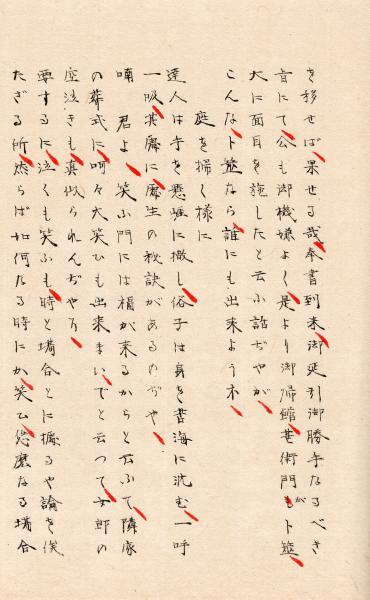 を移せば果せる哉奉書到来御延引御勝手なるべき
旨にて公も御機嫌よく是より御帰館甚衛門がト筮
大に面目を施したと云ふ話ぢやが
こんなト筮なら誰にも出来ようネ
庭を掃く様に
達人は手を懸崖に撒し俗子は身を苦海に沈む一呼
一吸其処に養生の秘訣があるのぢや
喃君よ笑ふ門には福が来るからと云ふて隣家
の葬式に呵々大笑ひも出来まいでと云つて女郎の
空泣きも真似られんぢやろ
要するに泣くも笑ふも時と場合とに拠るや論を俟
たざる所然らば如何なる時にか笑ひ恁麼なる場合